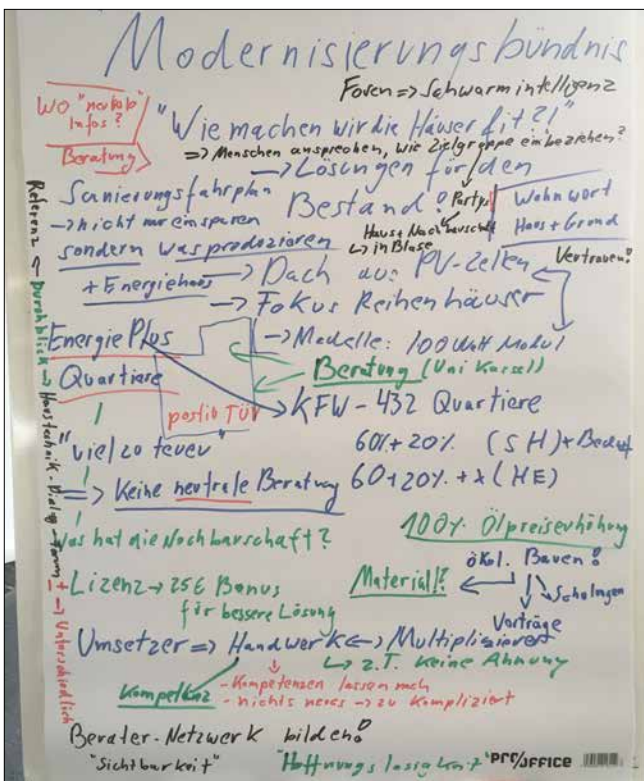 Modernisierungsbündnis
Foren => Schwarmintelligenz
WO "neutrale" Infos?
Beratung
"Wie machen wir die Häuser fit?!"
=> Menschen ansprechen, wie Zielgruppe einbeziehen?
-> Lösungen für den
Bestand!
Sanierungsfahrplan
-> nicht nur einsparen
sondern was produzieren
Haus + Nachbarschaft
-> in Blase
Wohnwort
Haus + Grund
Vertrauen!
+ Energiehaus -> Dach aus PV-Zellen
-> Fokus Reihenhäuser
Energie Plus
Quartiere
-> Modelle: 100 Watt Modul
Beratung (Uni Kassel)
positiv TÜV
KFW - 432 Quartiere
"viel zu teuer"
60% + 20% (SH) + Bedarf
=> Keine neutrale Beratung
60 + 20% + x (HE)
Was hat die Nachbarschaft?
100% Ölpreiserhöhung
ökol. Bauen!
Material!?
Schulungen
Vorträge
Lizenz -> 25€ Bonus
für bessere Lösung
Umsetzer => Handwerk <-> Multiplizierer
-> z.T. keine Ahnung
Kompetenz
- Kompetenzen lassen nach
- nichts neues -> zu kompliziert
Berater-Netzwerk bilden!
"Sichtbarkeit"
"Hoffnungslosigkeit"
PRO/OFFICE
Referenz <- Durchblick -> Haustechnik-Dialog-Forum + -> Unterschiedlich